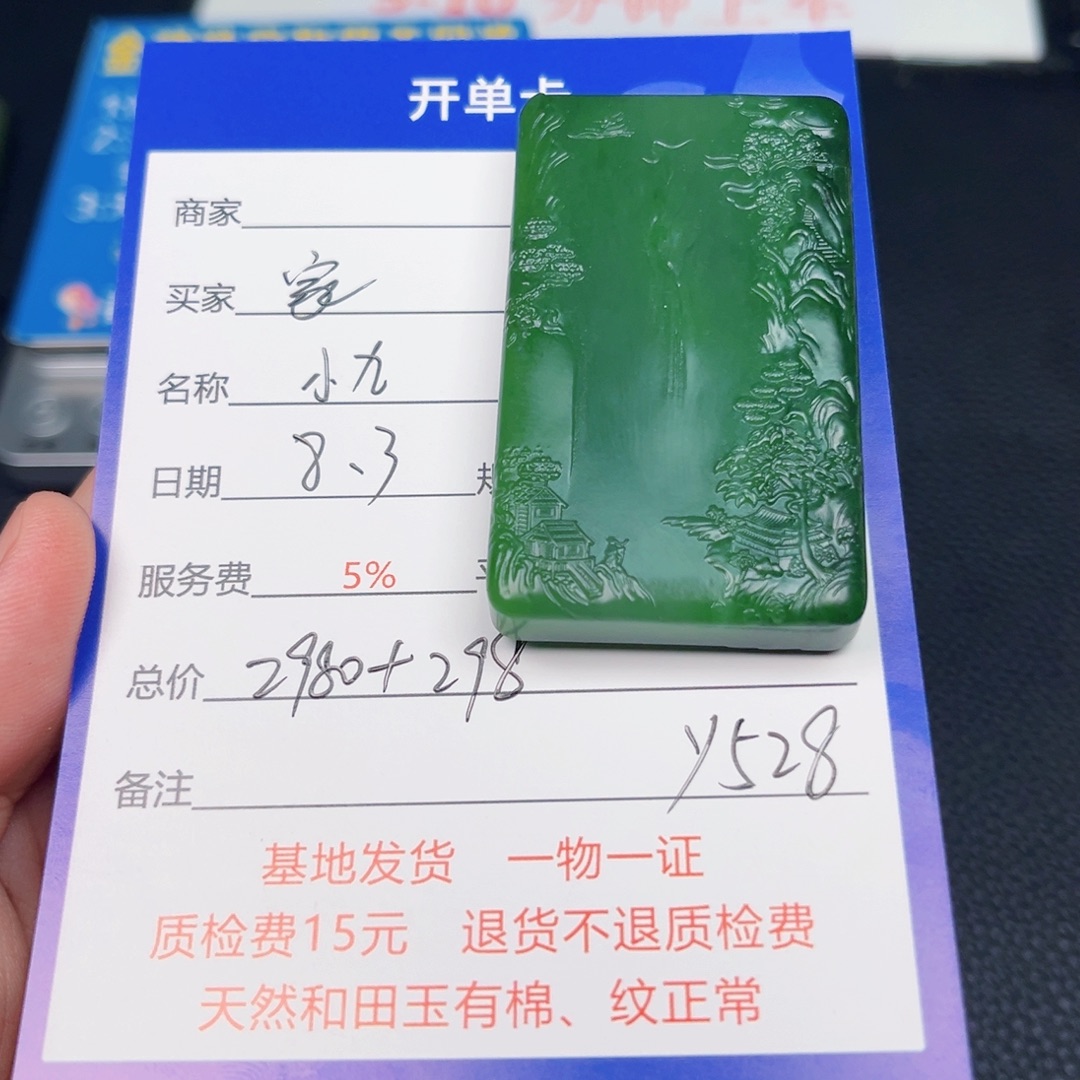 开单卡
商家
买家
名称 小九
日期 8、3
服务费 5%
总价 2980+298
备注 y528
基地发货 一物一证
质检费15元 退货不退质检费
天然和田玉有棉、纹正常